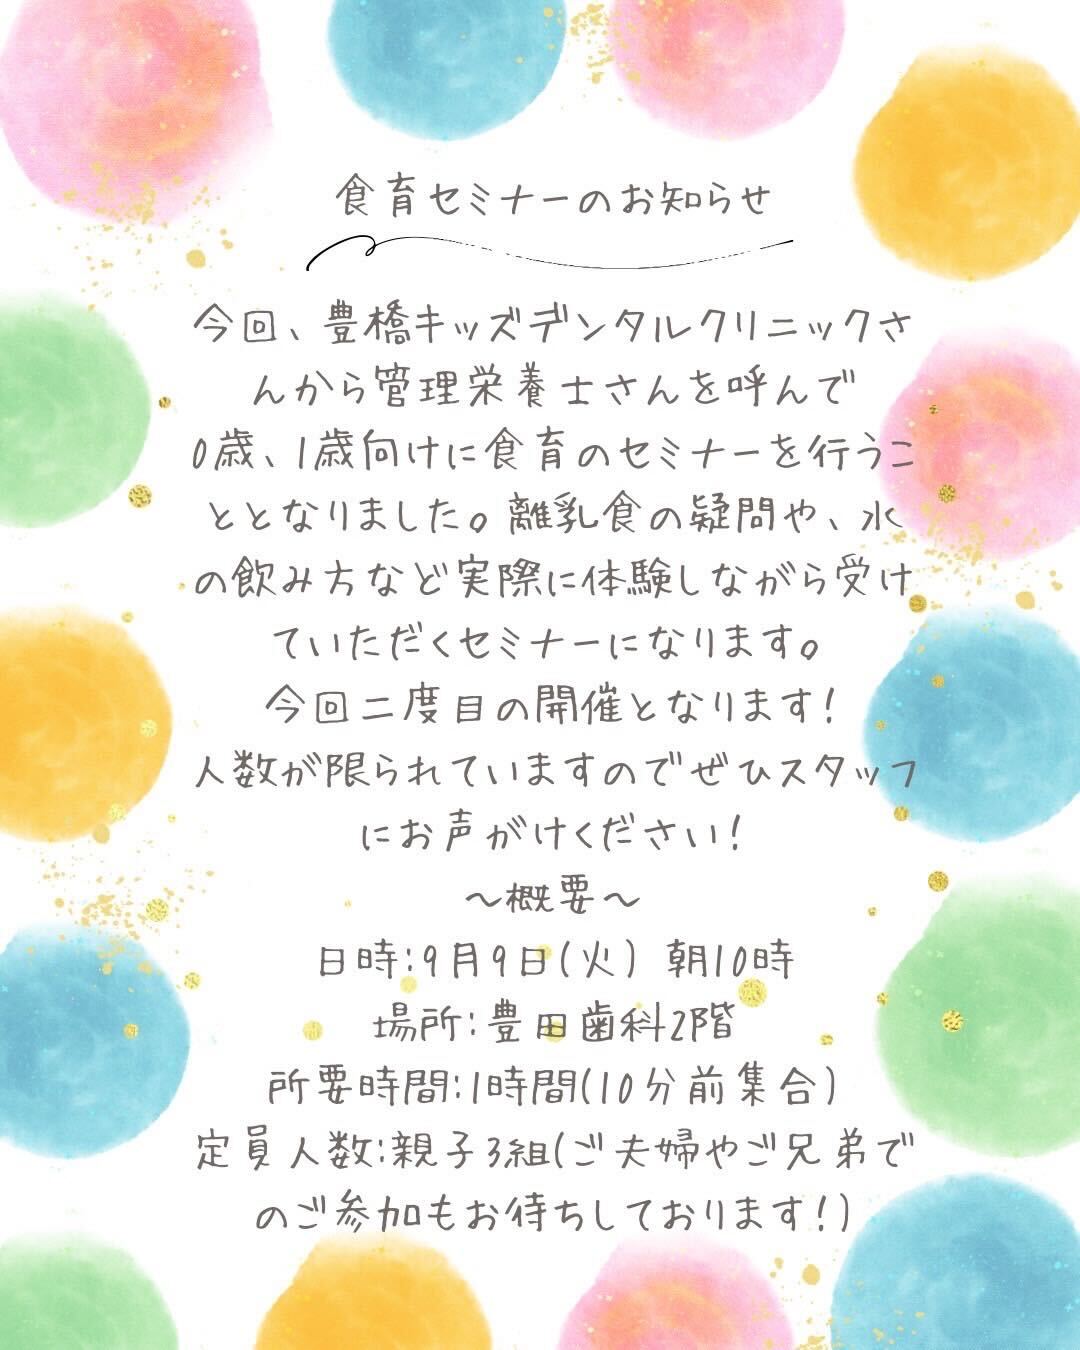 食育セミナーのお知らせ
今回、豊橋キッズデンタルクリニックさ
んから管理栄養士さんを呼んで
0歳、1歳向けに食育のセミナーを行うこ
ととなりました。離乳食の疑問や、水
の飲み方など実際に体験しながら受け
ていただくセミナーになります。
今回二度目の開催となります!
人数が限られていますのでぜひスタッフ
にお声がけください!
〜概要〜
日時:9月9日(火) 朝10時
場所:豊田歯科2階
所要時間:1時間(10分前集合)
定員人数:親子3組(ご夫婦やご兄弟で
のご参加もお待ちしております!)